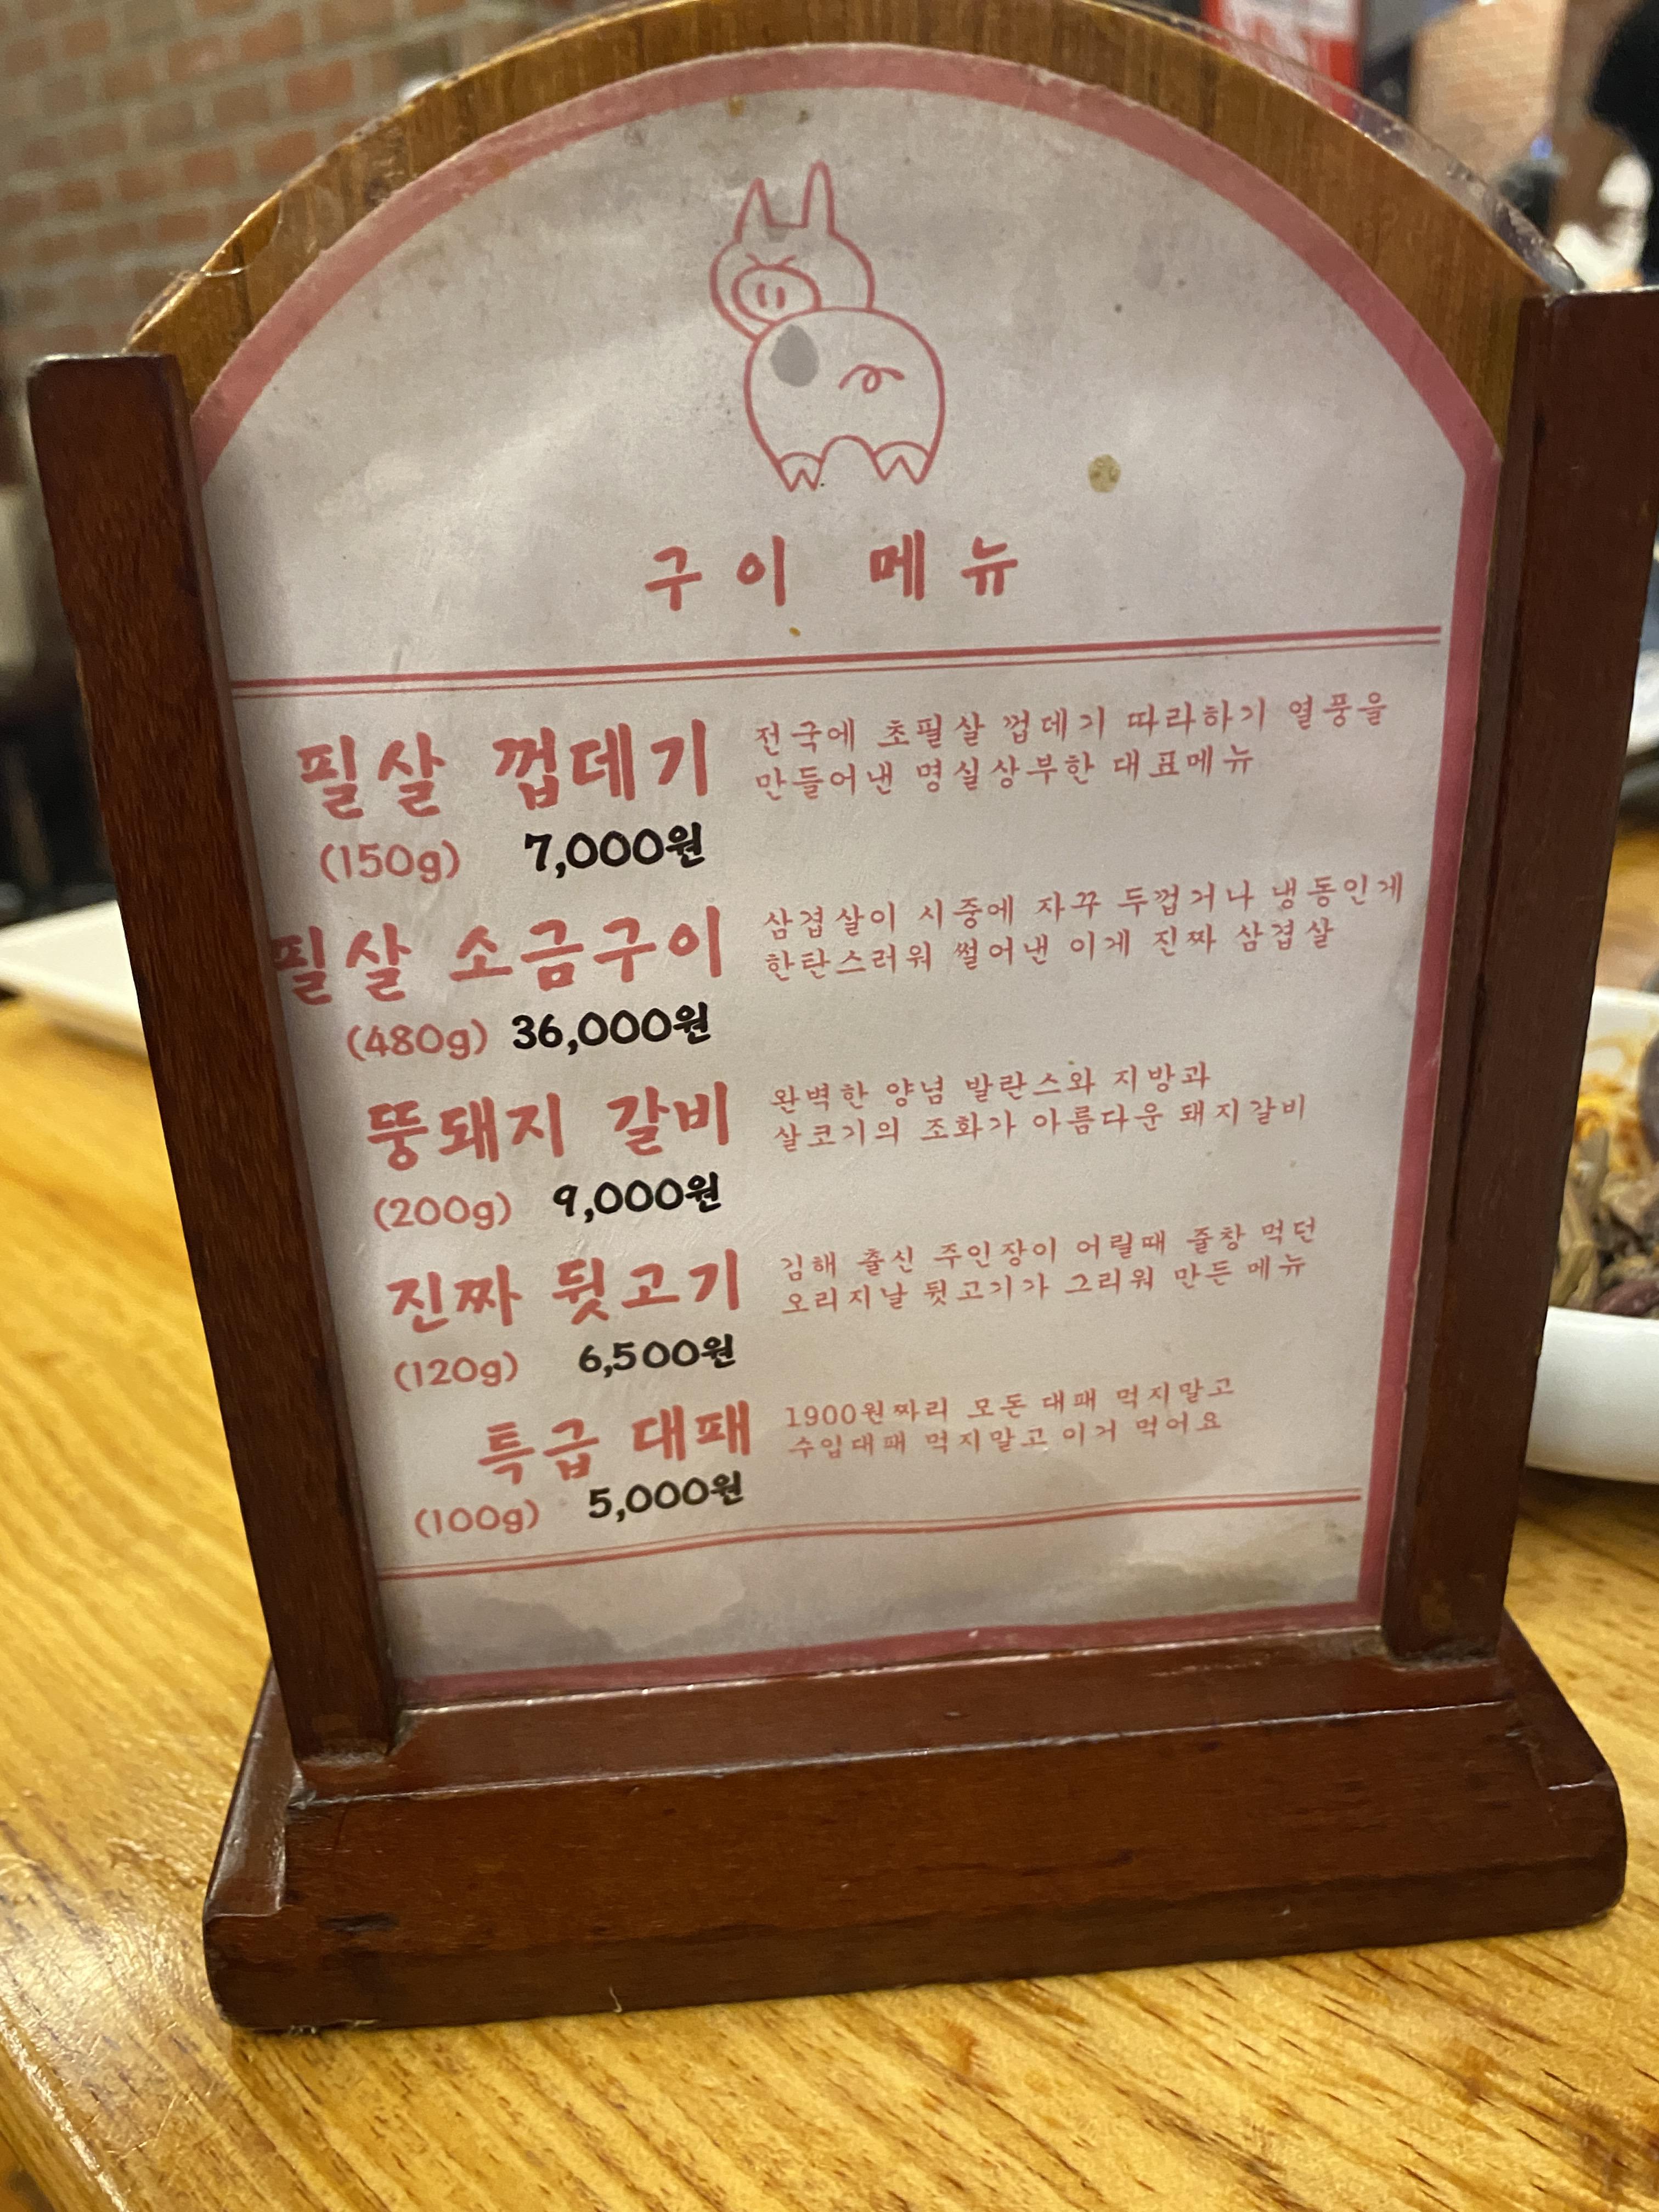 구이 메뉴
필살 껍데기
(150g) 7,000원
전국에 초필살 껍데기 따라하기 열풍을
만들어낸 명실상부한 대표메뉴
필살 소금구이
(480g) 36,000원
삼겹살이 시중에 자꾸 두껍거나 냉동인게
한탄스러워 썰어낸 이게 진짜 삼겹살
뚱돼지 갈비
(200g) 9,000원
완벽한 양념 발란스와 지방과
살코기의 조화가 아름다운 돼지갈비
진짜 뒷고기
(120g) 6,500원
김해 출신 주인장이 어릴때 줄창 먹던
오리지날 뒷고기가 그리워 만든 메뉴
특급 대패
(100g) 5,000원
1900원짜리 모돈 대패 먹지말고
수입대패 먹지말고 이거 먹어요